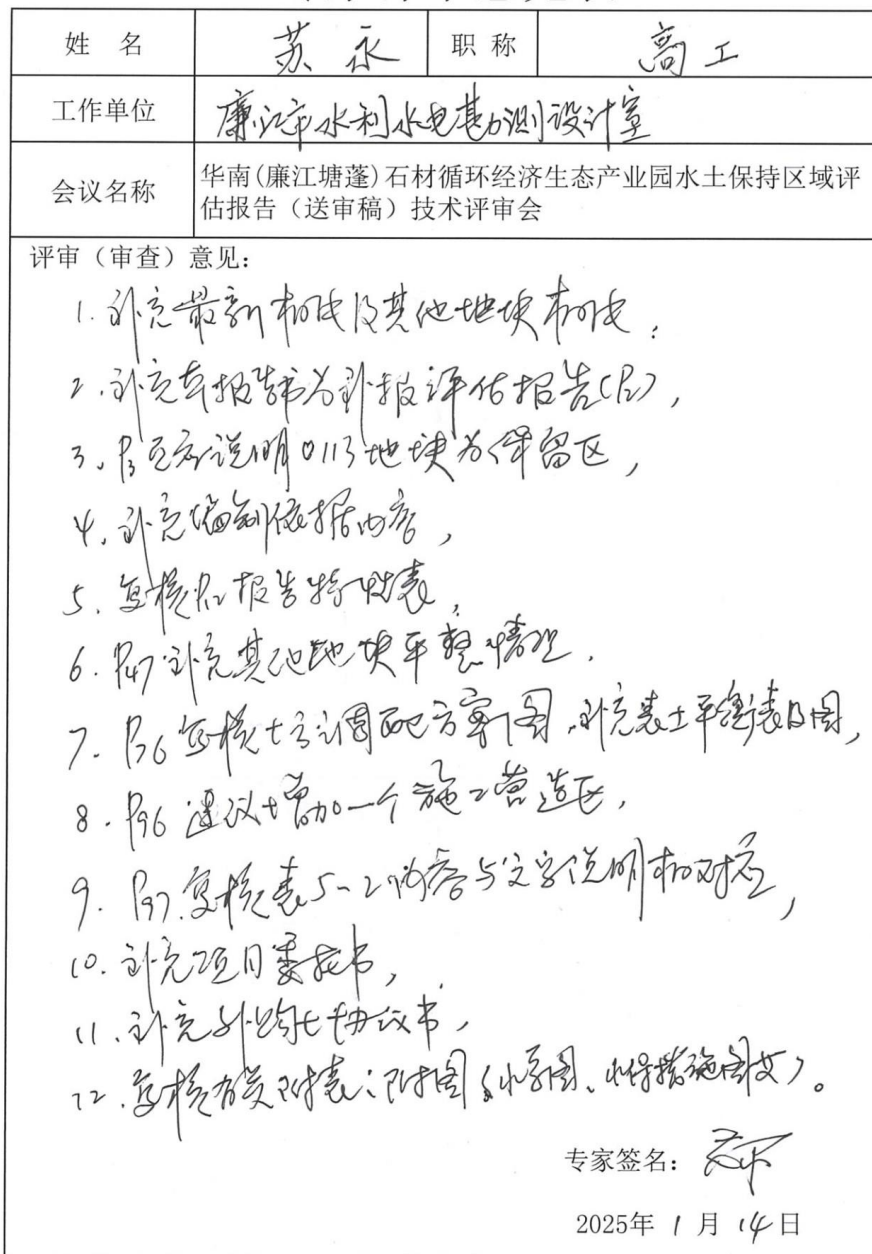 姓 名 苏永 职 称 高工
工作单位 廉江市水利水电勘测设计室
会议名称 华南(廉江塘蓬)石材循环经济生态产业园水土保持区域评
估报告（送审稿）技术评审会
评审（审查）意见：
1. 补充最新 及其他地块
2. 补充本报告书为补报评估报告(P2),
3. P3 说明0113地块为保留区,
4. 补充编制依据内容,
5. 复核 报告特性表,
6. P47补充其他地块平整情况.
7. P76复核土方调配方案图.补充表土平衡表及图,
8. P96建议增加一个施工营造区,
9. P97.复核表5-2内容与文字说明相对应,
10. 补充项目委托书,
11. 补充外购土协议书,
12. 复核有关附表;附图(水系图、水保措施图 )。
专家签名：
2025年 1 月 14 日